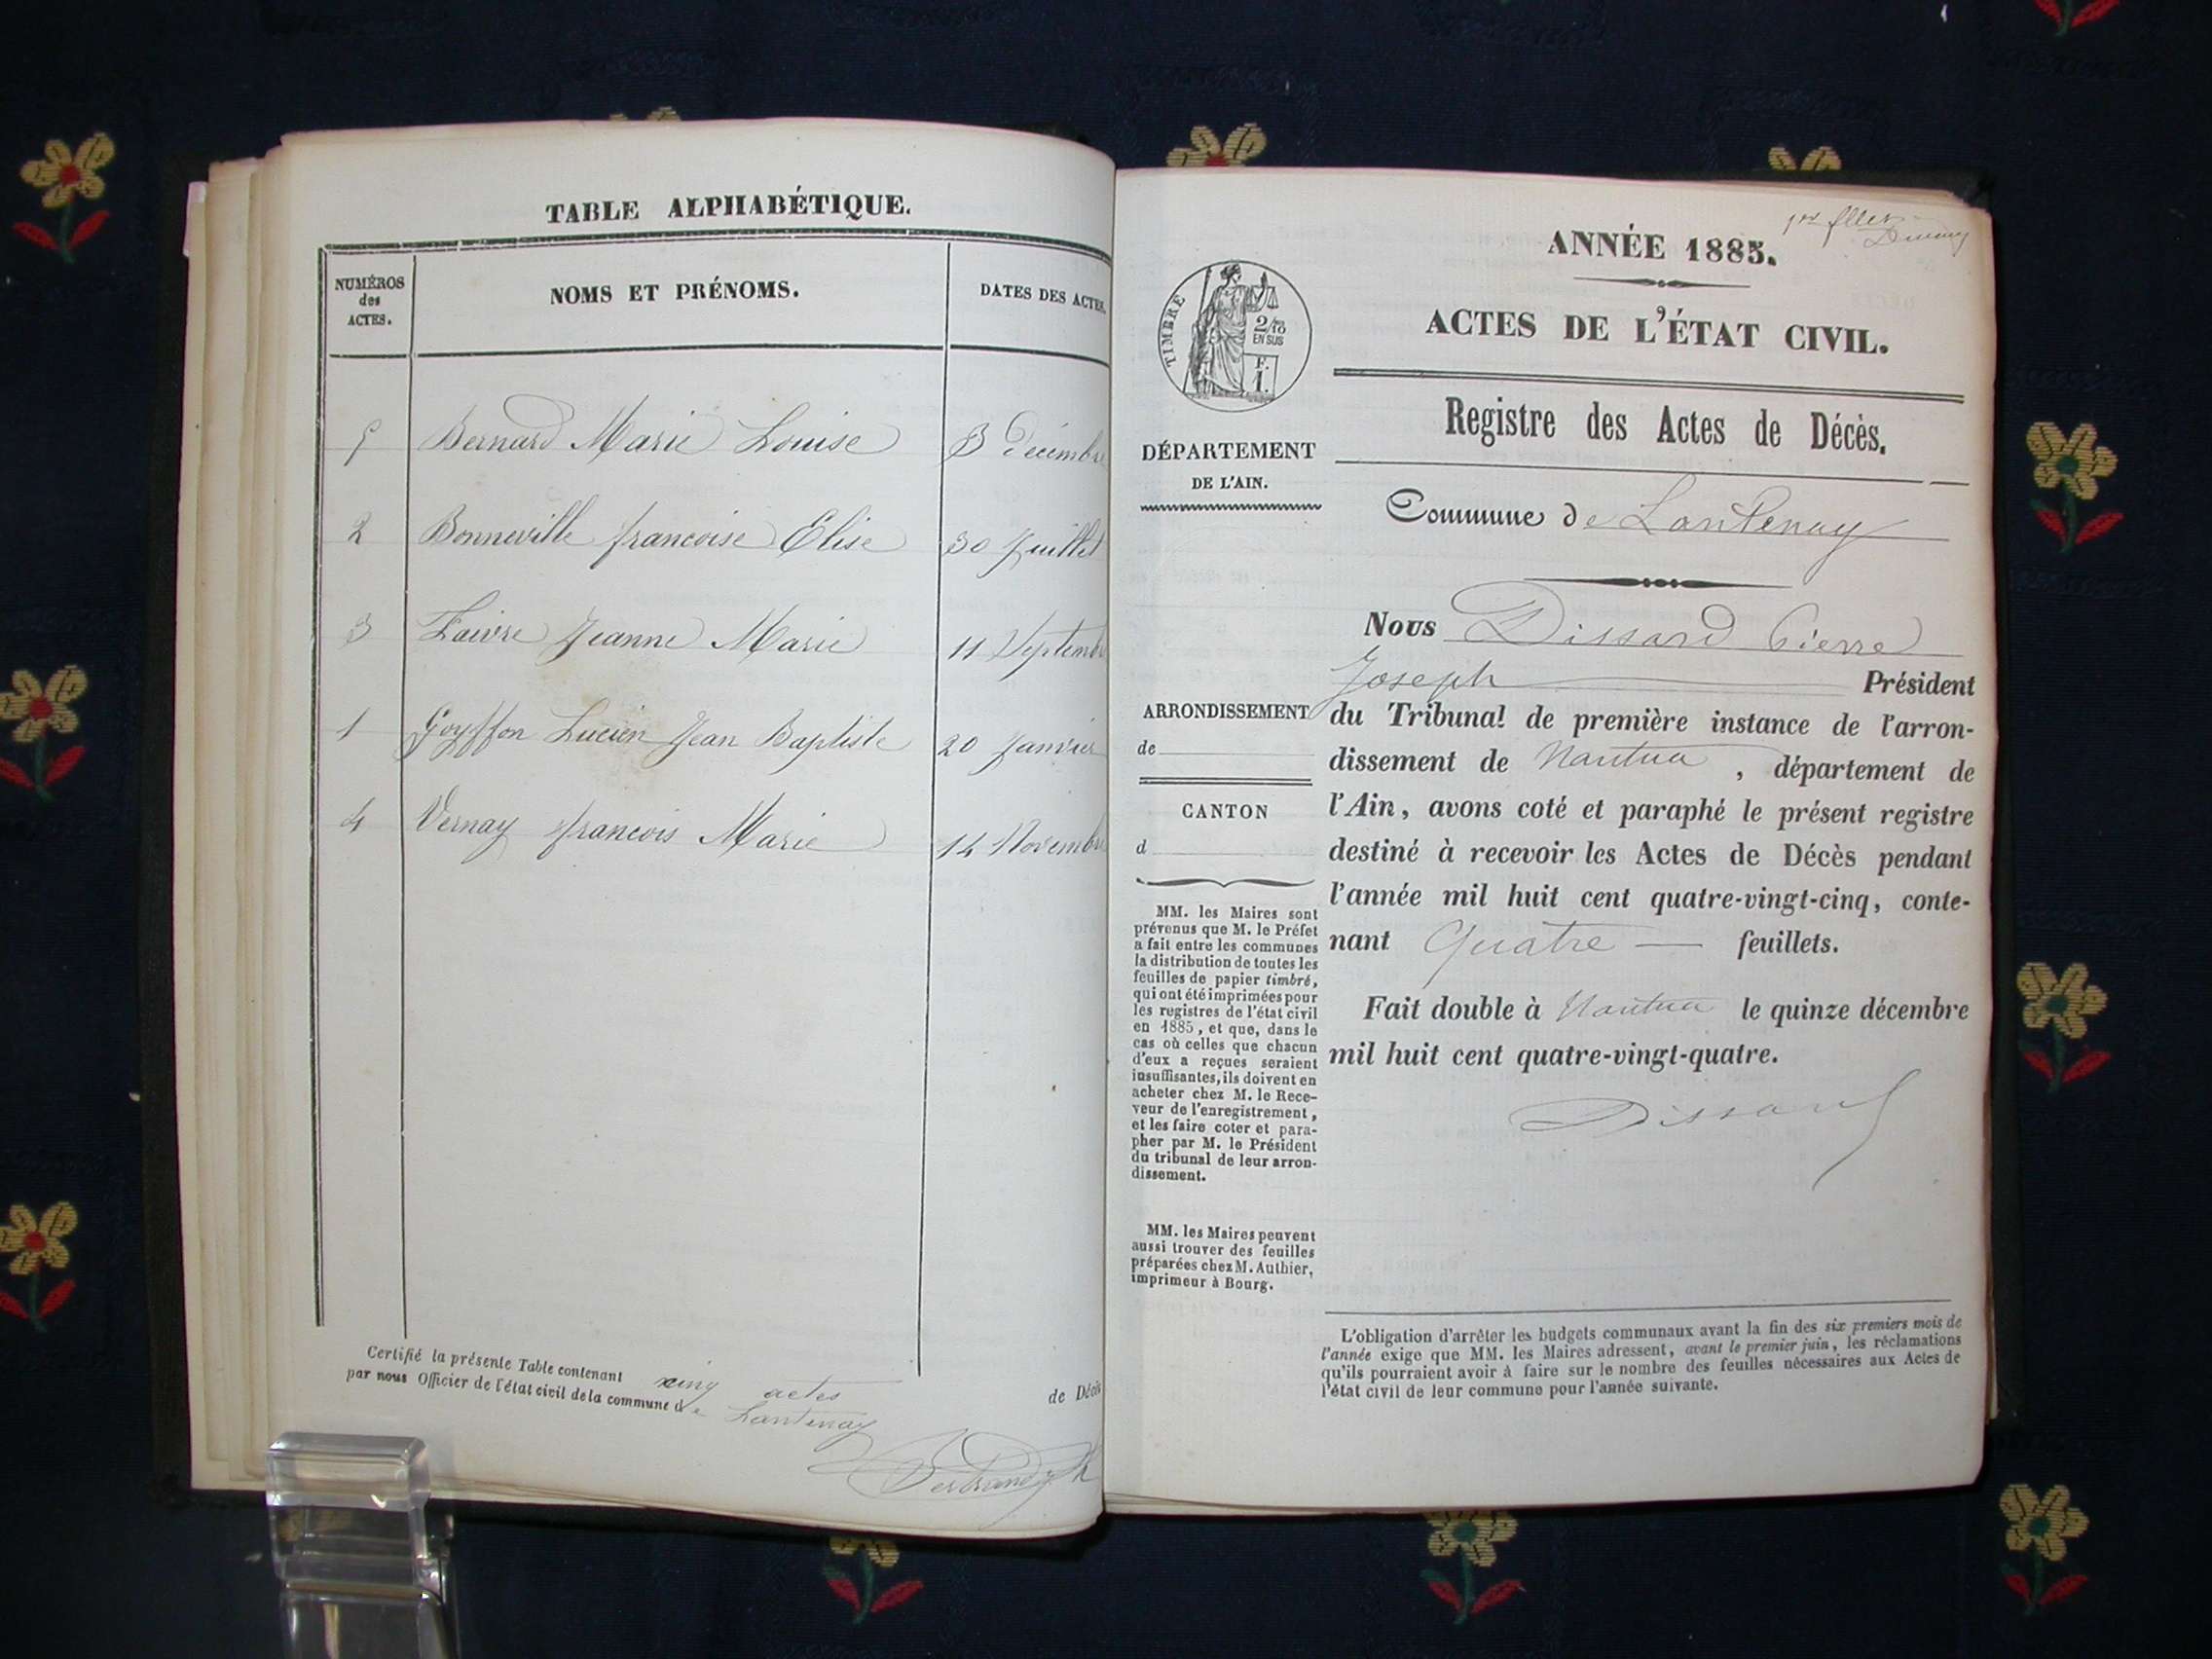 TABLE ALPHABÉTIQUE.
NUMÉROS
des
ACTES.
NOMS ET PRÉNOMS.
DATES DES ACTES.
5 Bernard Marie Louise 3 Décembre
2 Bonneville francoise Elise 30 Juillet
3 Faivre Jeanne Marie 11 Septembre
1 Goyffon Lucien Jean Baptiste 20 Janvier
4 Vernay francois Marie 14 Novembre
Certifié la présente Table contenant cinq actes de Décès
par nous Officier de l'état civil de la commune de Lantenay
1er
ANNÉE 1885.
ACTES DE L'ÉTAT CIVIL.
TIMBRE
2/10
EN SUS
F.
1.
Registre des Actes de Décès.
DÉPARTEMENT
DE L'AIN.
Commune de Lantenay
Nous Dissard Pierre
Joseph Président
du Tribunal de première instance de l'arron-
dissement de Nantua, département de
l'Ain, avons coté et paraphé le présent registre
destiné à recevoir les Actes de Décès pendant
l'année mil huit cent quatre-vingt-cinq, conte-
nant Quatre — feuillets.
Fait double à Nantua le quinze décembre
mil huit cent quatre-vingt-quatre.
Dissard
ARRONDISSEMENT
de
CANTON
d
MM. les Maires sont
prévenus que M. le Préfet
a fait entre les communes
la distribution de toutes les
feuilles de papier timbré,
qui ont été imprimées pour
les registres de l'état civil
en 1885, et que, dans le
cas où celles que chacun
d'eux a reçues seraient
insuffisantes, ils doivent en
acheter chez M. le Rece-
veur de l'enregistrement,
et les faire coter et para-
pher par M. le Président
du tribunal de leur arron-
dissement.
MM. les Maires peuvent
aussi trouver des feuilles
préparées chez M. Authier,
imprimeur à Bourg.
L'obligation d'arrêter les budgets communaux avant la fin des six premiers mois de
l'année exige que MM. les Maires adressent, avant le premier juin, les réclamations
qu'ils pourraient avoir à faire sur le nombre des feuilles nécessaires aux Actes de
l'état civil de leur commune pour l'année suivante.